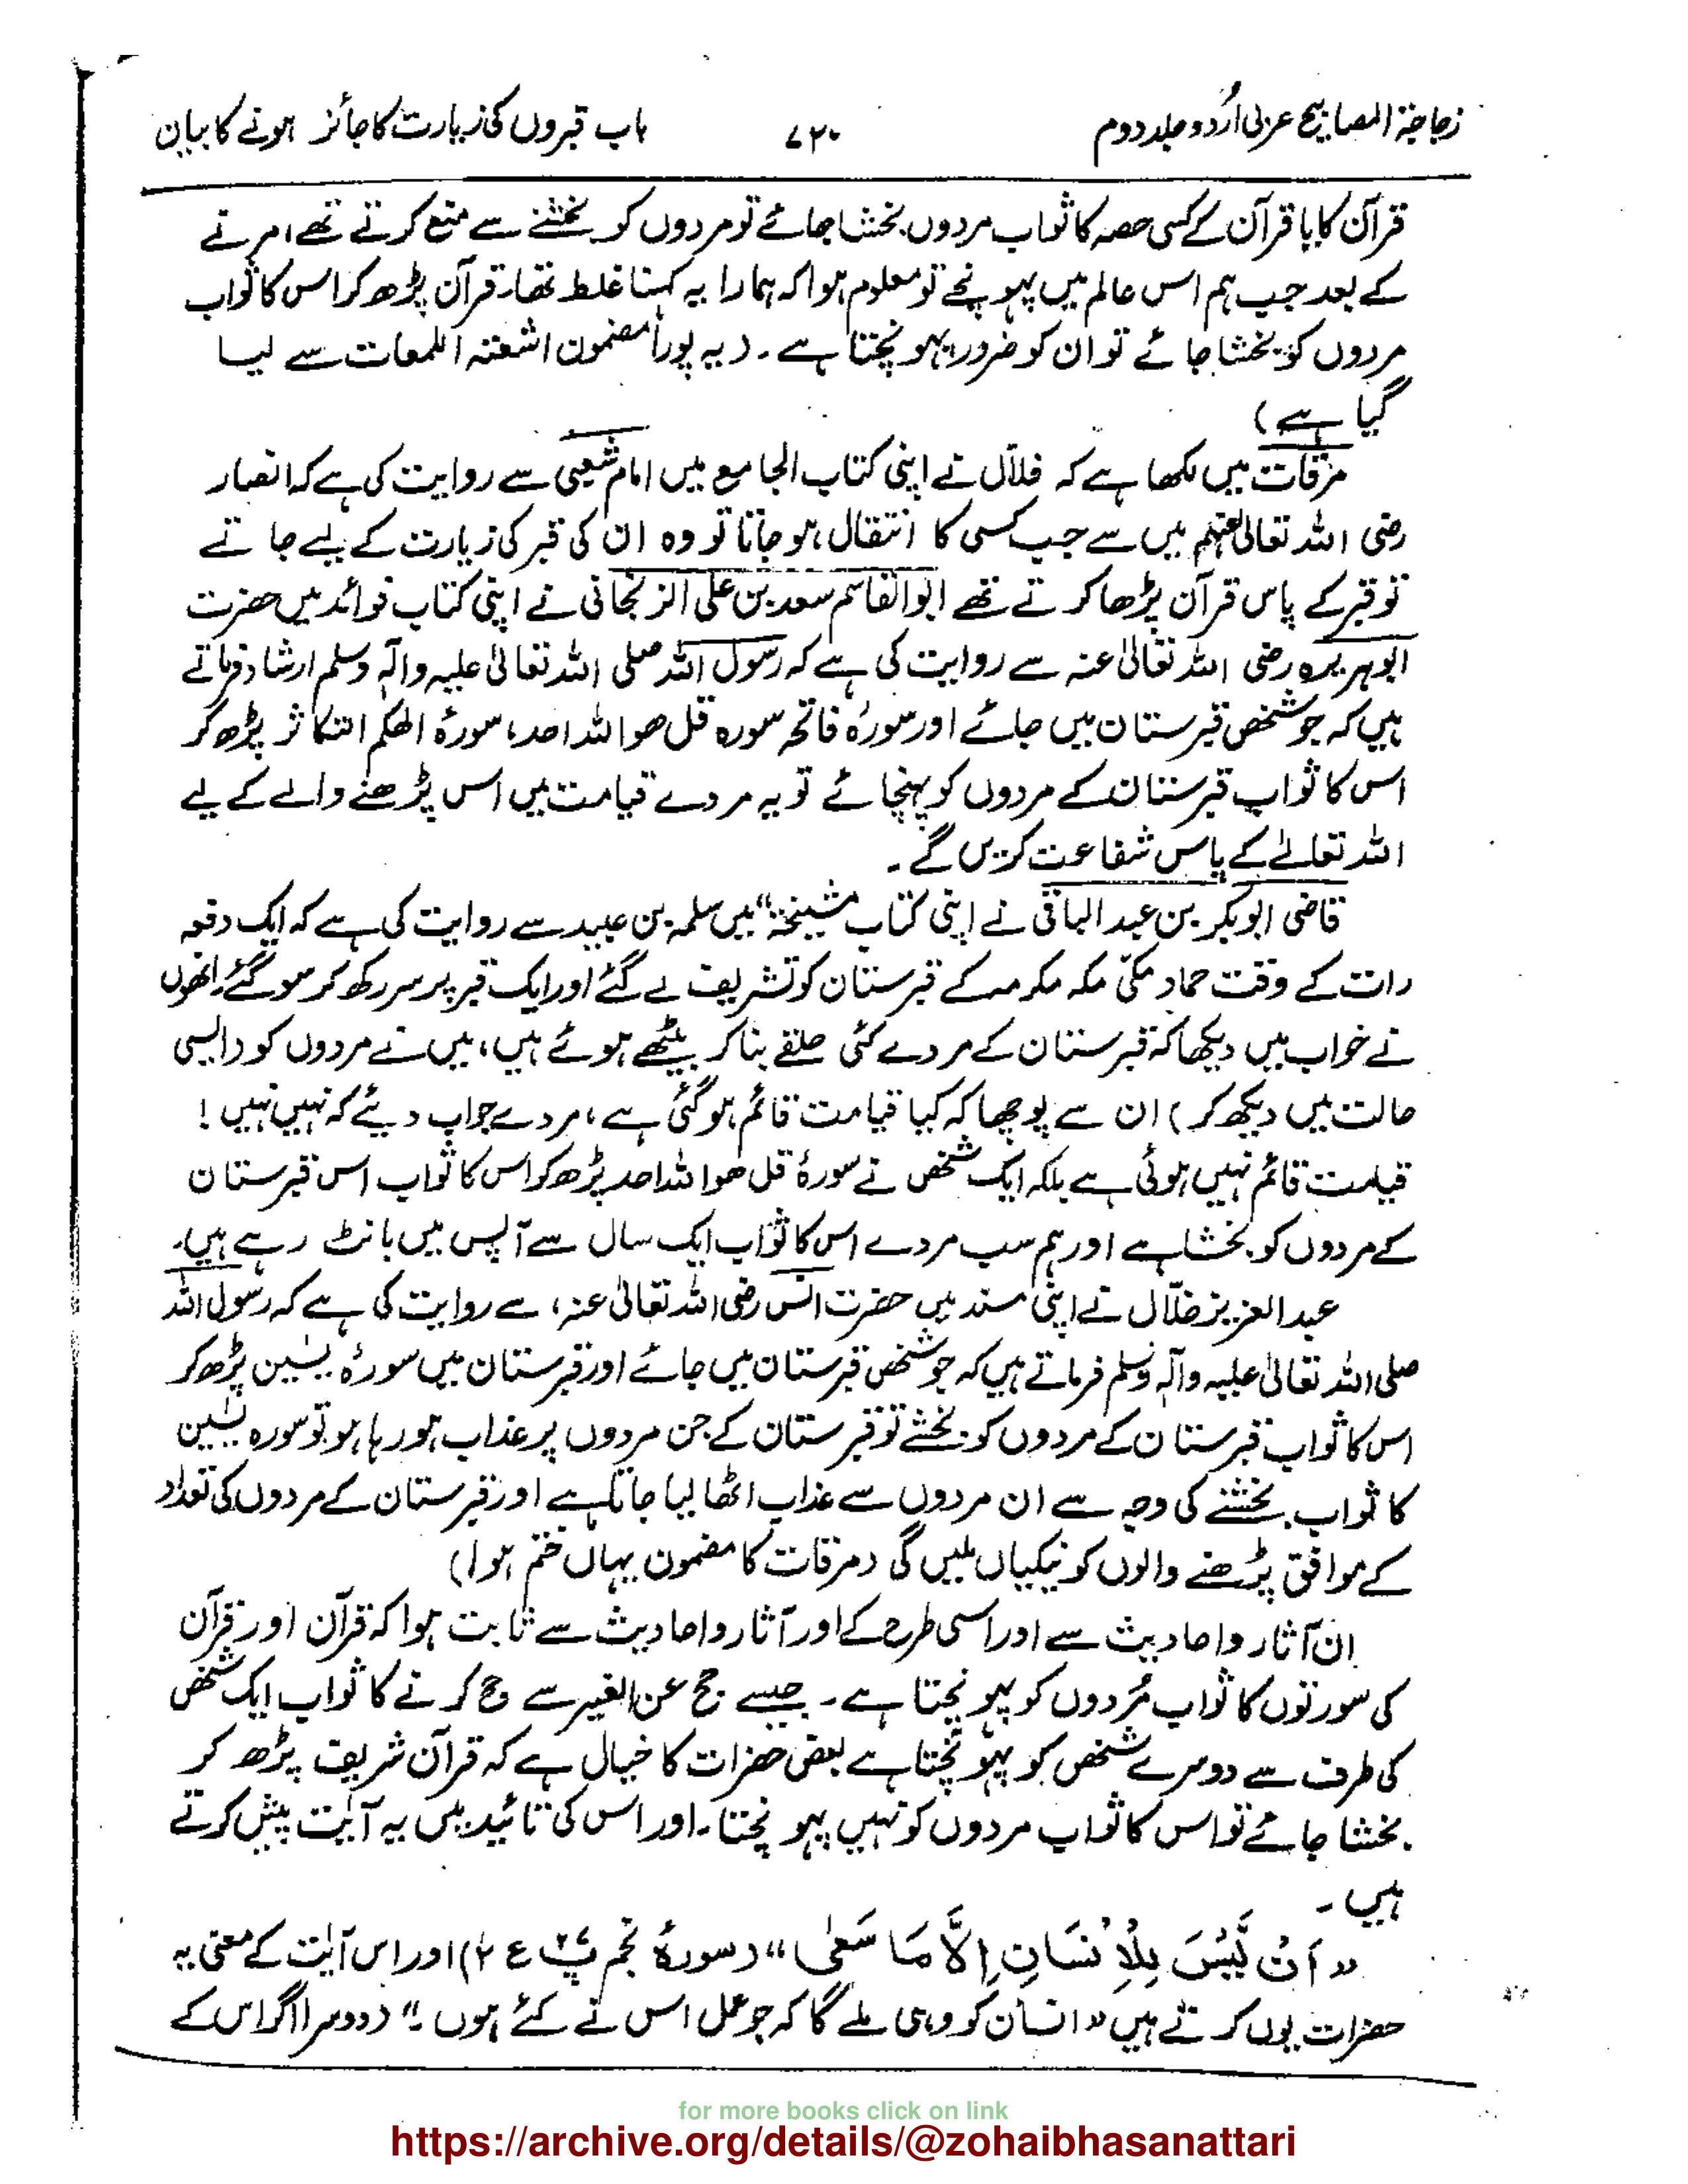 زجاجۃ المصابیح عربی اُردو جلد دوم ۷۲۰ باب قبروں کی زیارت کا جائز ہونے کا بیان
قرآن کا یا قرآن کے کسی حصہ کا ثواب مردوں بخشا جائے تو مردوں کو بخشنے سے منع کرتے تھے، مرنے
کے بعد جب ہم اس عالم میں پہونچے تو معلوم ہوا کہ ہمارا یہ کہنا غلط تھا، قرآن پڑھ کر اس کا ثواب
مردوں کو بخشا جائے تو ان کو ضرور پہونچتا ہے۔ (یہ پورا مضمون اشعتہ اللمعات سے لیا
گیا ہے)
مرقات میں لکھا ہے کہ فلاّل نے اپنی کتاب الجامع میں امام شعبی سے روایت کی ہے کہ انصار
رضی اللہ تعالیٰ عنہم میں سے جب کسی کا انتقال ہو جاتا تو وہ ان کی قبر کی زیارت کے لیے جاتے
تو قبر کے پاس قرآن پڑھا کرتے تھے ابوالقاسم سعد بن علی الزنجانی نے اپنی کتاب فوائد میں حضرت
ابوہریرہ رضی اللہ تعالیٰ عنہ سے روایت کی ہے کہ رسول اللہ صلی اللہ تعالیٰ علیہ وآلہٖ وسلم ارشاد فرماتے
ہیں کہ جو شخص قبرستان میں جائے اور سورۂ فاتحہ سورہ قل ھو اللہ احد، سورۂ الھکم التکاثر پڑھ کر
اس کا ثواب قبرستان کے مردوں کو پہنچائے تو یہ مردے قیامت میں اس پڑھنے والے کے لیے
اللہ تعالےٰ کے پاس شفاعت کریں گے۔
قاضی ابوبکر بن عبد الباقی نے اپنی کتاب مشیخۃ" میں سلمہ بن عبید سے روایت کی ہے کہ ایک دفعہ
رات کے وقت حماد مکی مکہ مکرمہ کے قبرستان کو تشریف لے گئے اور ایک قبر پر سر رکھ کر سو گئے۔ انھوں
نے خواب میں دیکھا کہ قبرستان کے مردے کئی حلقے بنا کر بیٹھے ہوئے ہیں، میں نے مردوں کو (ایسی
حالت میں دیکھ کر) ان سے پوچھا کہ کیا قیامت قائم ہو گئی ہے، مردے جواب دیئے کہ نہیں نہیں!
قیامت قائم نہیں ہوئی ہے بلکہ ایک شخص نے سورۂ قل ھو اللہ احد پڑھ کو اس کا ثواب اس قبرستان
کے مردوں کو بخشا ہے اور ہم سب مردے اس کا ثواب ایک سال سے آپس میں بانٹ رہے ہیں۔
عبد العزیز خلّال نے اپنی سند میں حضرت انس رضی اللہ تعالیٰ عنہ، سے روایت کی ہے کہ رسول اللہ
صلی اللہ تعالیٰ علیہ وآلہٖ وسلم فرماتے ہیں کہ جو شخص قبرستان میں جائے اور قبرستان میں سورۂ یٰسین پڑھ کر
اس کا ثواب قبرستان کے مردوں کو بخشے تو قبرستان کے جن مردوں پر عذاب ہو رہا ہو تو سورہ یٰسین
کا ثواب بخشنے کی وجہ سے ان مردوں سے عذاب اٹھا لیا جاتا ہے اور قبرستان کے مردوں کی تعداد
کے موافق پڑھنے والوں کو نیکیاں ملیں گی (مرقات کا مضمون یہاں ختم ہوا)
ان آثار و احادیث سے اور اسی طرح کے اور آثار و احادیث سے ثابت ہوا کہ قرآن اور قرآن
کی سورتوں کا ثواب مُردوں کو پہونچتا ہے۔ جیسے حج عن الغیر سے حج کرنے کا ثواب ایک شخص
کی طرف سے دوسرے شخص کو پہونچتا ہے بعض حضرات کا خیال ہے کہ قرآن شریف پڑھ کر
بخشا جائے تو اس کا ثواب مردوں کو نہیں پہونچتا۔ اور اس کی تائید میں یہ آیت پیش کرتے
ہیں۔
"اَنْ لَّیْسَ لِلْاِنْسَانِ اِلَّا مَا سَعٰی" (سورۂ نجم پ۲۷ ع ۲) اور اس آیت کے معنی یہ
حضرات یوں کرتے ہیں "انسان کو وہی ملے گا کہ جو عمل اس نے کئے ہوں۔" (دوسرا اگر اس کے
for more books click on link
https://archive.org/details/@zohaibhasanattari